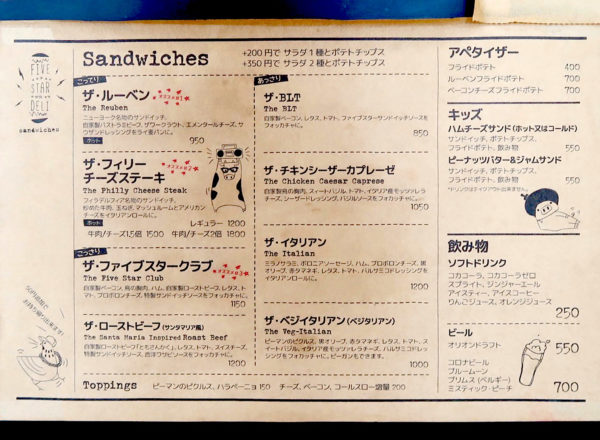 FIVE
STAR
DELI
sandwiches
Sandwiches
+200円で サラダ 1種とポテトチップス
+350円で サラダ 2種とポテトチップス
こってり
ザ・ルーベン オススメ#1
The Reuben
ニューヨーク名物のサンドイッチ。
自家製パストラミビーフ、ザワークラウト、エメンタールチーズ、サ
ウザンドレッシングをライ麦パンに。
ホット 950
ザ・フィリー
チーズステーキ オススメ#2
The Philly Cheese Steak
フィラデルフィア名物のサンドイッチ。
炒めた牛肉、玉ねぎ、マッシュルームとアメリカン
チーズをイタリアンロールに。
ホット レギュラー 1200
牛肉/チーズ1.5倍 1500 牛肉/チーズ2倍 1800
こっさり
ザ・ファイブスタークラブ オススメ#3
The Five Star Club
自家製ベーコン、鳥の胸肉、ハム、自家製ローストビーフ、レタス、ト
マト、プロボロンチーズ、特製サンドイッチソースをフォッカチャに。
1150
ザ・ローストビーフ (サンタマリア風)
The Santa Maria Inspired Roast Beef
自家製ローストビーフ、レタス、トマト、スイスチーズ、
特製サンドイッチソース、西洋ワサビソースをフォッカチャに。
1200
あっさり
ザ・BLT
The BLT
自家製ベーコン、レタス、トマト、ファイブスターサンドイッチソースを
フォッカチャに。
850
ザ・チキンシーザーカプレーゼ
The Chicken Caesar Caprese
自家製鳥の胸肉、スィートバジル、トマト、イタリア産モッツァレラ
チーズ、シーザードレッシング、バジルソースをフォカッチャに。
1050
ザ・イタリアン
The Italian
ミラノサラミ、ボロニアソーセージ、ハム、プロボロンチーズ、黒
オリーブ、赤タマネギ、レタス、トマト、バルサミコドレッシング
をイタリアンロールに。
1200
ザ・ベジイタリアン (ベジタリアン)
The Veg-Italian
ピーマンのピクルス、黒オリーブ、赤タマネギ、レタス、トマト、ス
イートバジル、イタリア産モッツァレラチーズ、バルサミコドレッシ
ングをフォカッチャに。ビーガンもできます。
1000
Toppings ピーマンのピクルス、ハラペーニョ 150 チーズ、ベーコン、コールスロー増量 200
アペタイザー
フライドポテト 400
ルーベンフライドポテト 700
ベーコンチーズフライドポテト 700
キッズ
ハムチーズサンド (ホット又はコールド)
サンドイッチ、ポテトチップス、
フライドポテト、飲み物 550
ピーナッツバター&ジャムサンド
サンドイッチ、ポテトチップス、
フライドポテト、飲み物 550
*ドリンクはテイクアウト出来ません。
飲み物
ソフトドリンク
コカコーラ、コカコーラゼロ
スプライト、ジンジャーエール
アイスティー、アイスコーヒー
りんごジュース、オレンジジュース
250
ビール
オリオンドラフト 550
コロナビール
ブルームーン
プリムス (ベルギー)
ミスティック・ピーチ 700